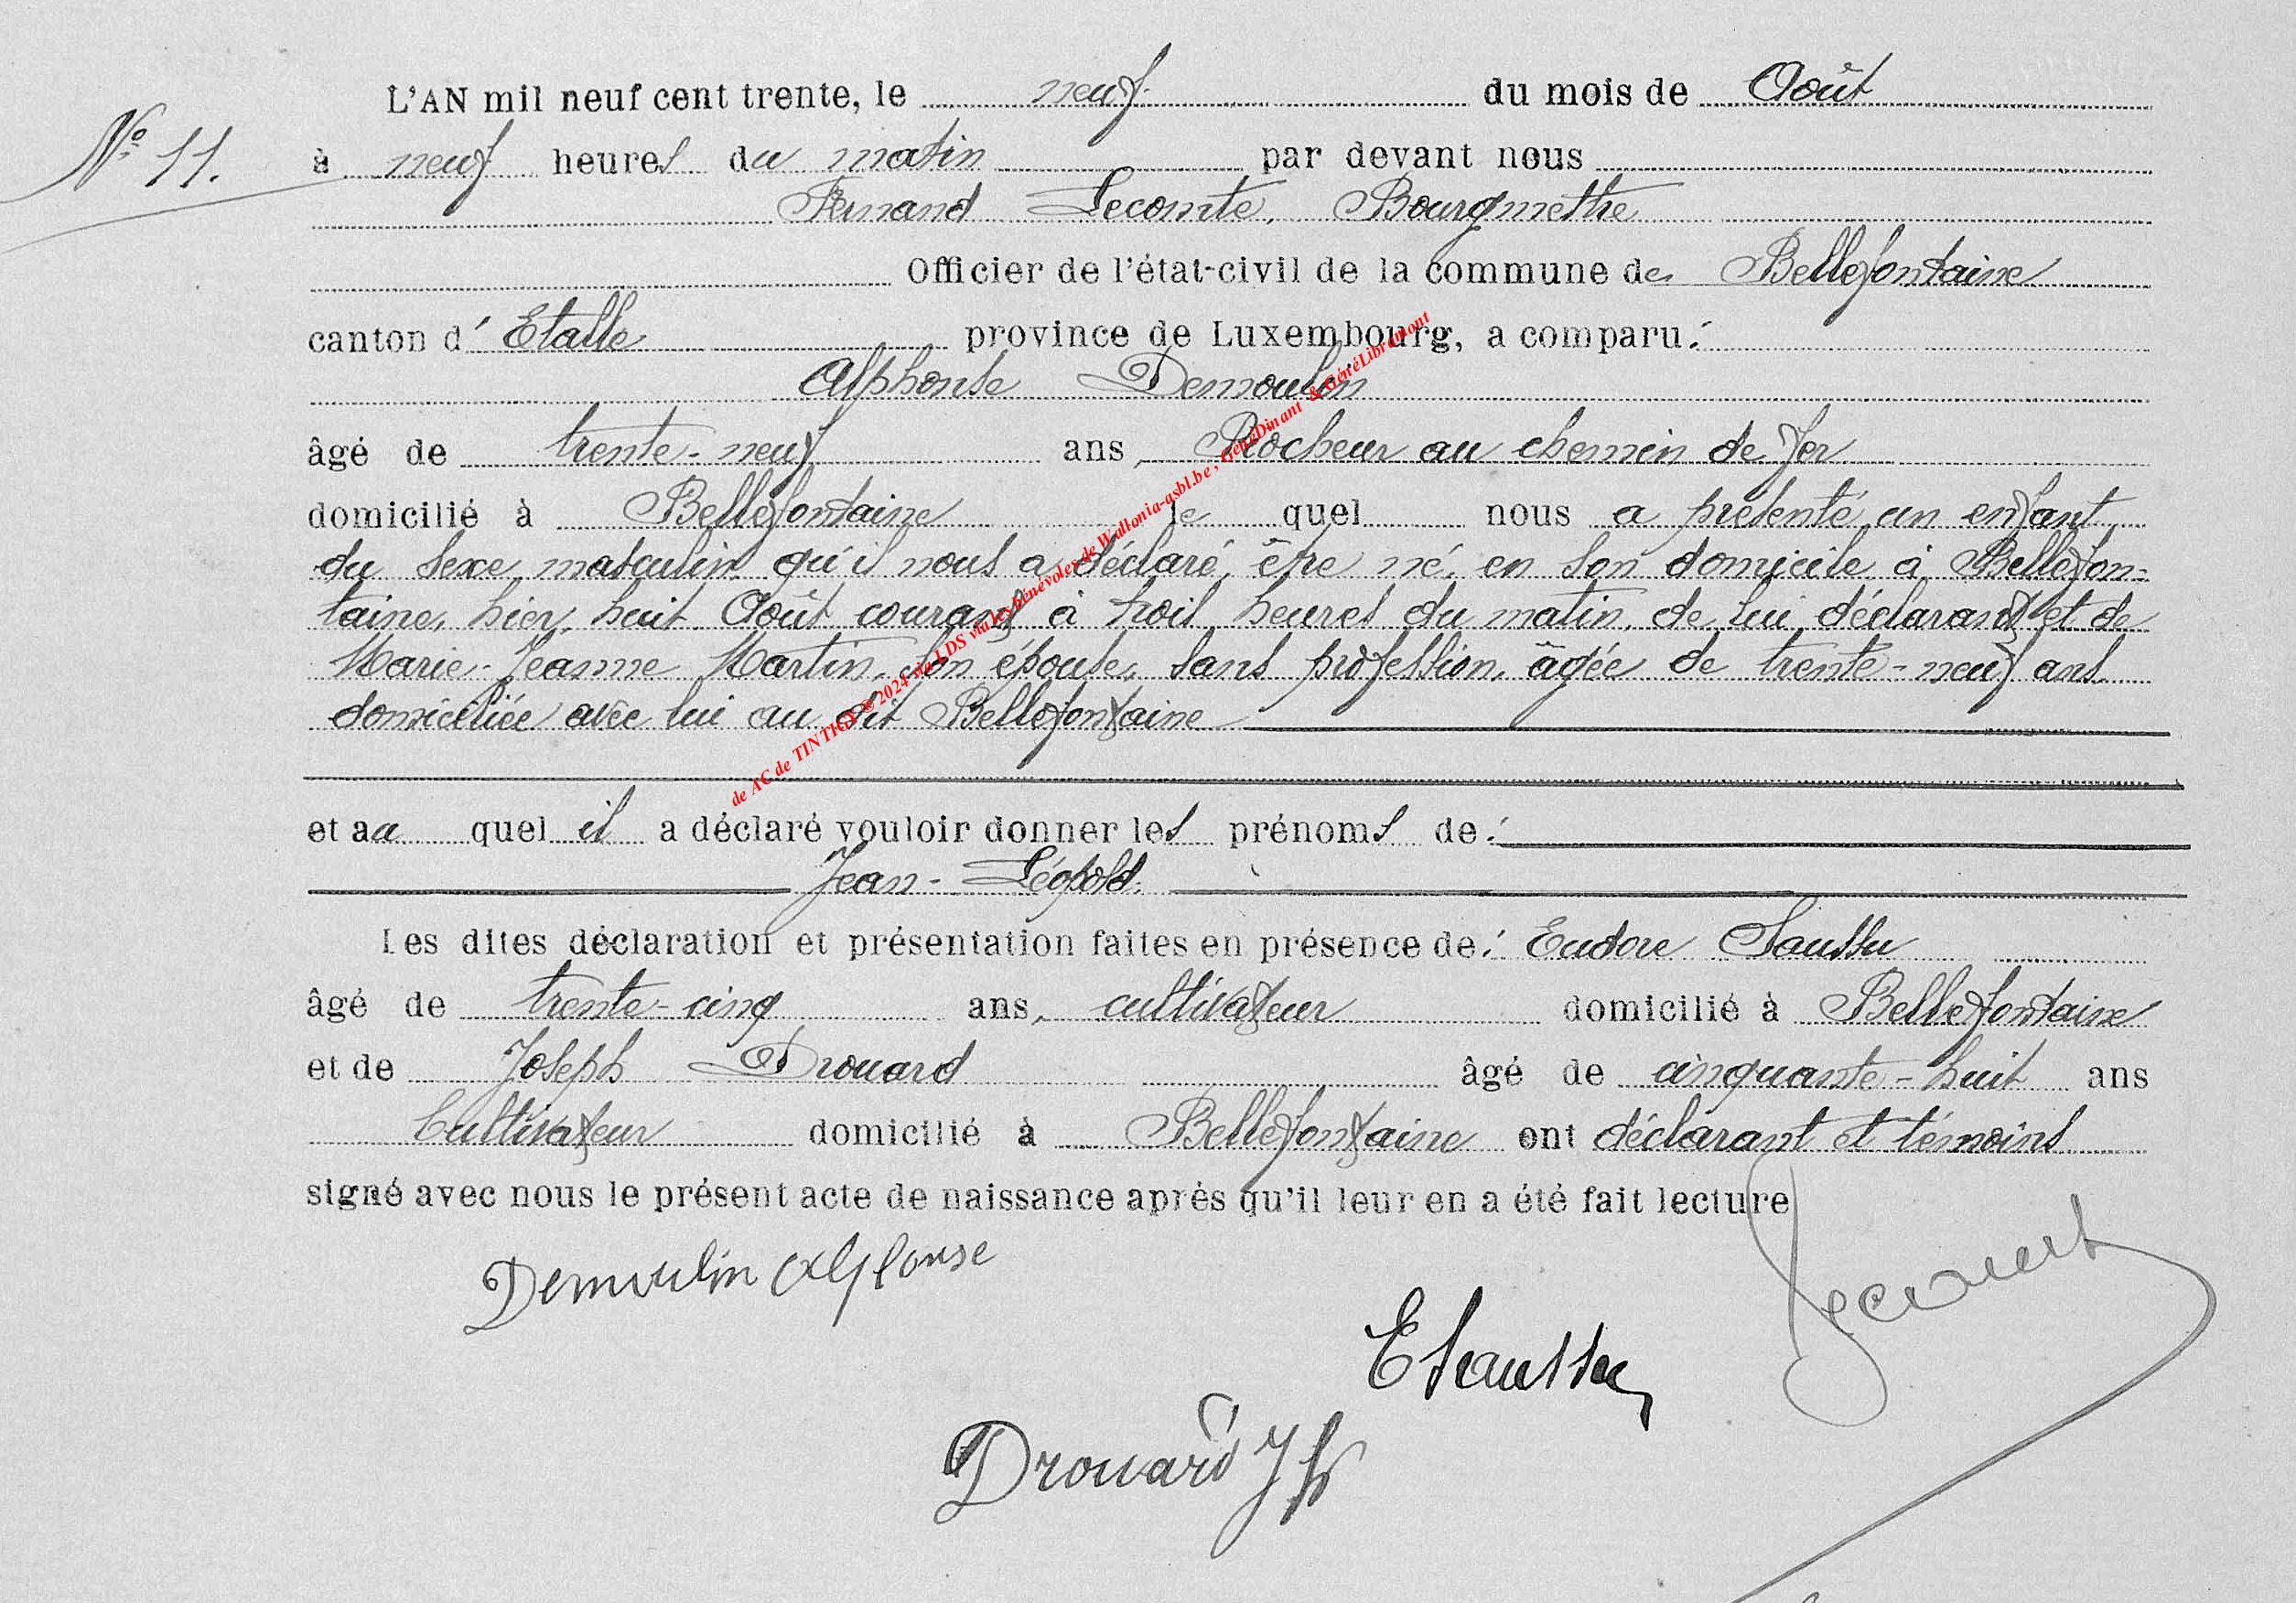 L'AN mil neuf cent trente, le neuf du mois de Août
N° 11.
à neuf heures du matin par devant nous
Fernand Lecomte, Bourgmettre
Officier de l'état-civil de la commune de Bellefontaine
canton d' Etalle province de Luxembourg, a comparu :
Alphonse Demoulin
âgé de trente-neuf ans, Piocheur au chemin de fer
domicilié à Bellefontaine le quel nous a présenté un enfant
du sexe masculin qu'il nous a déclaré être né, en son domicile à Bellefon-
taine, hier, huit Août courant à trois heures du matin, de lui déclarant et de
Marie-Jeanne Martin, son épouse, sans profession, âgée de trente-neuf ans
domiciliée avec lui au dit Bellefontaine
et au quel il a déclaré vouloir donner les prénoms de :
Jean-Léopold.
Les dites déclaration et présentation faites en présence de : Eudore Saussu
âgé de trente-cinq ans, cultivateur domicilié à Bellefontaine
et de Joseph Drouard âgé de cinquante-huit ans
Cultivateur domicilié à Bellefontaine ont déclarant et témoins
signé avec nous le présent acte de naissance après qu'il leur en a été fait lecture
Demoulin Alphonse
E Saussu
Drouard Jh
de AC de TINTIGNY © 2024 via LDS via les bénévoles de Wallonia-asbl.be, GénéDinant & GénéLibramont